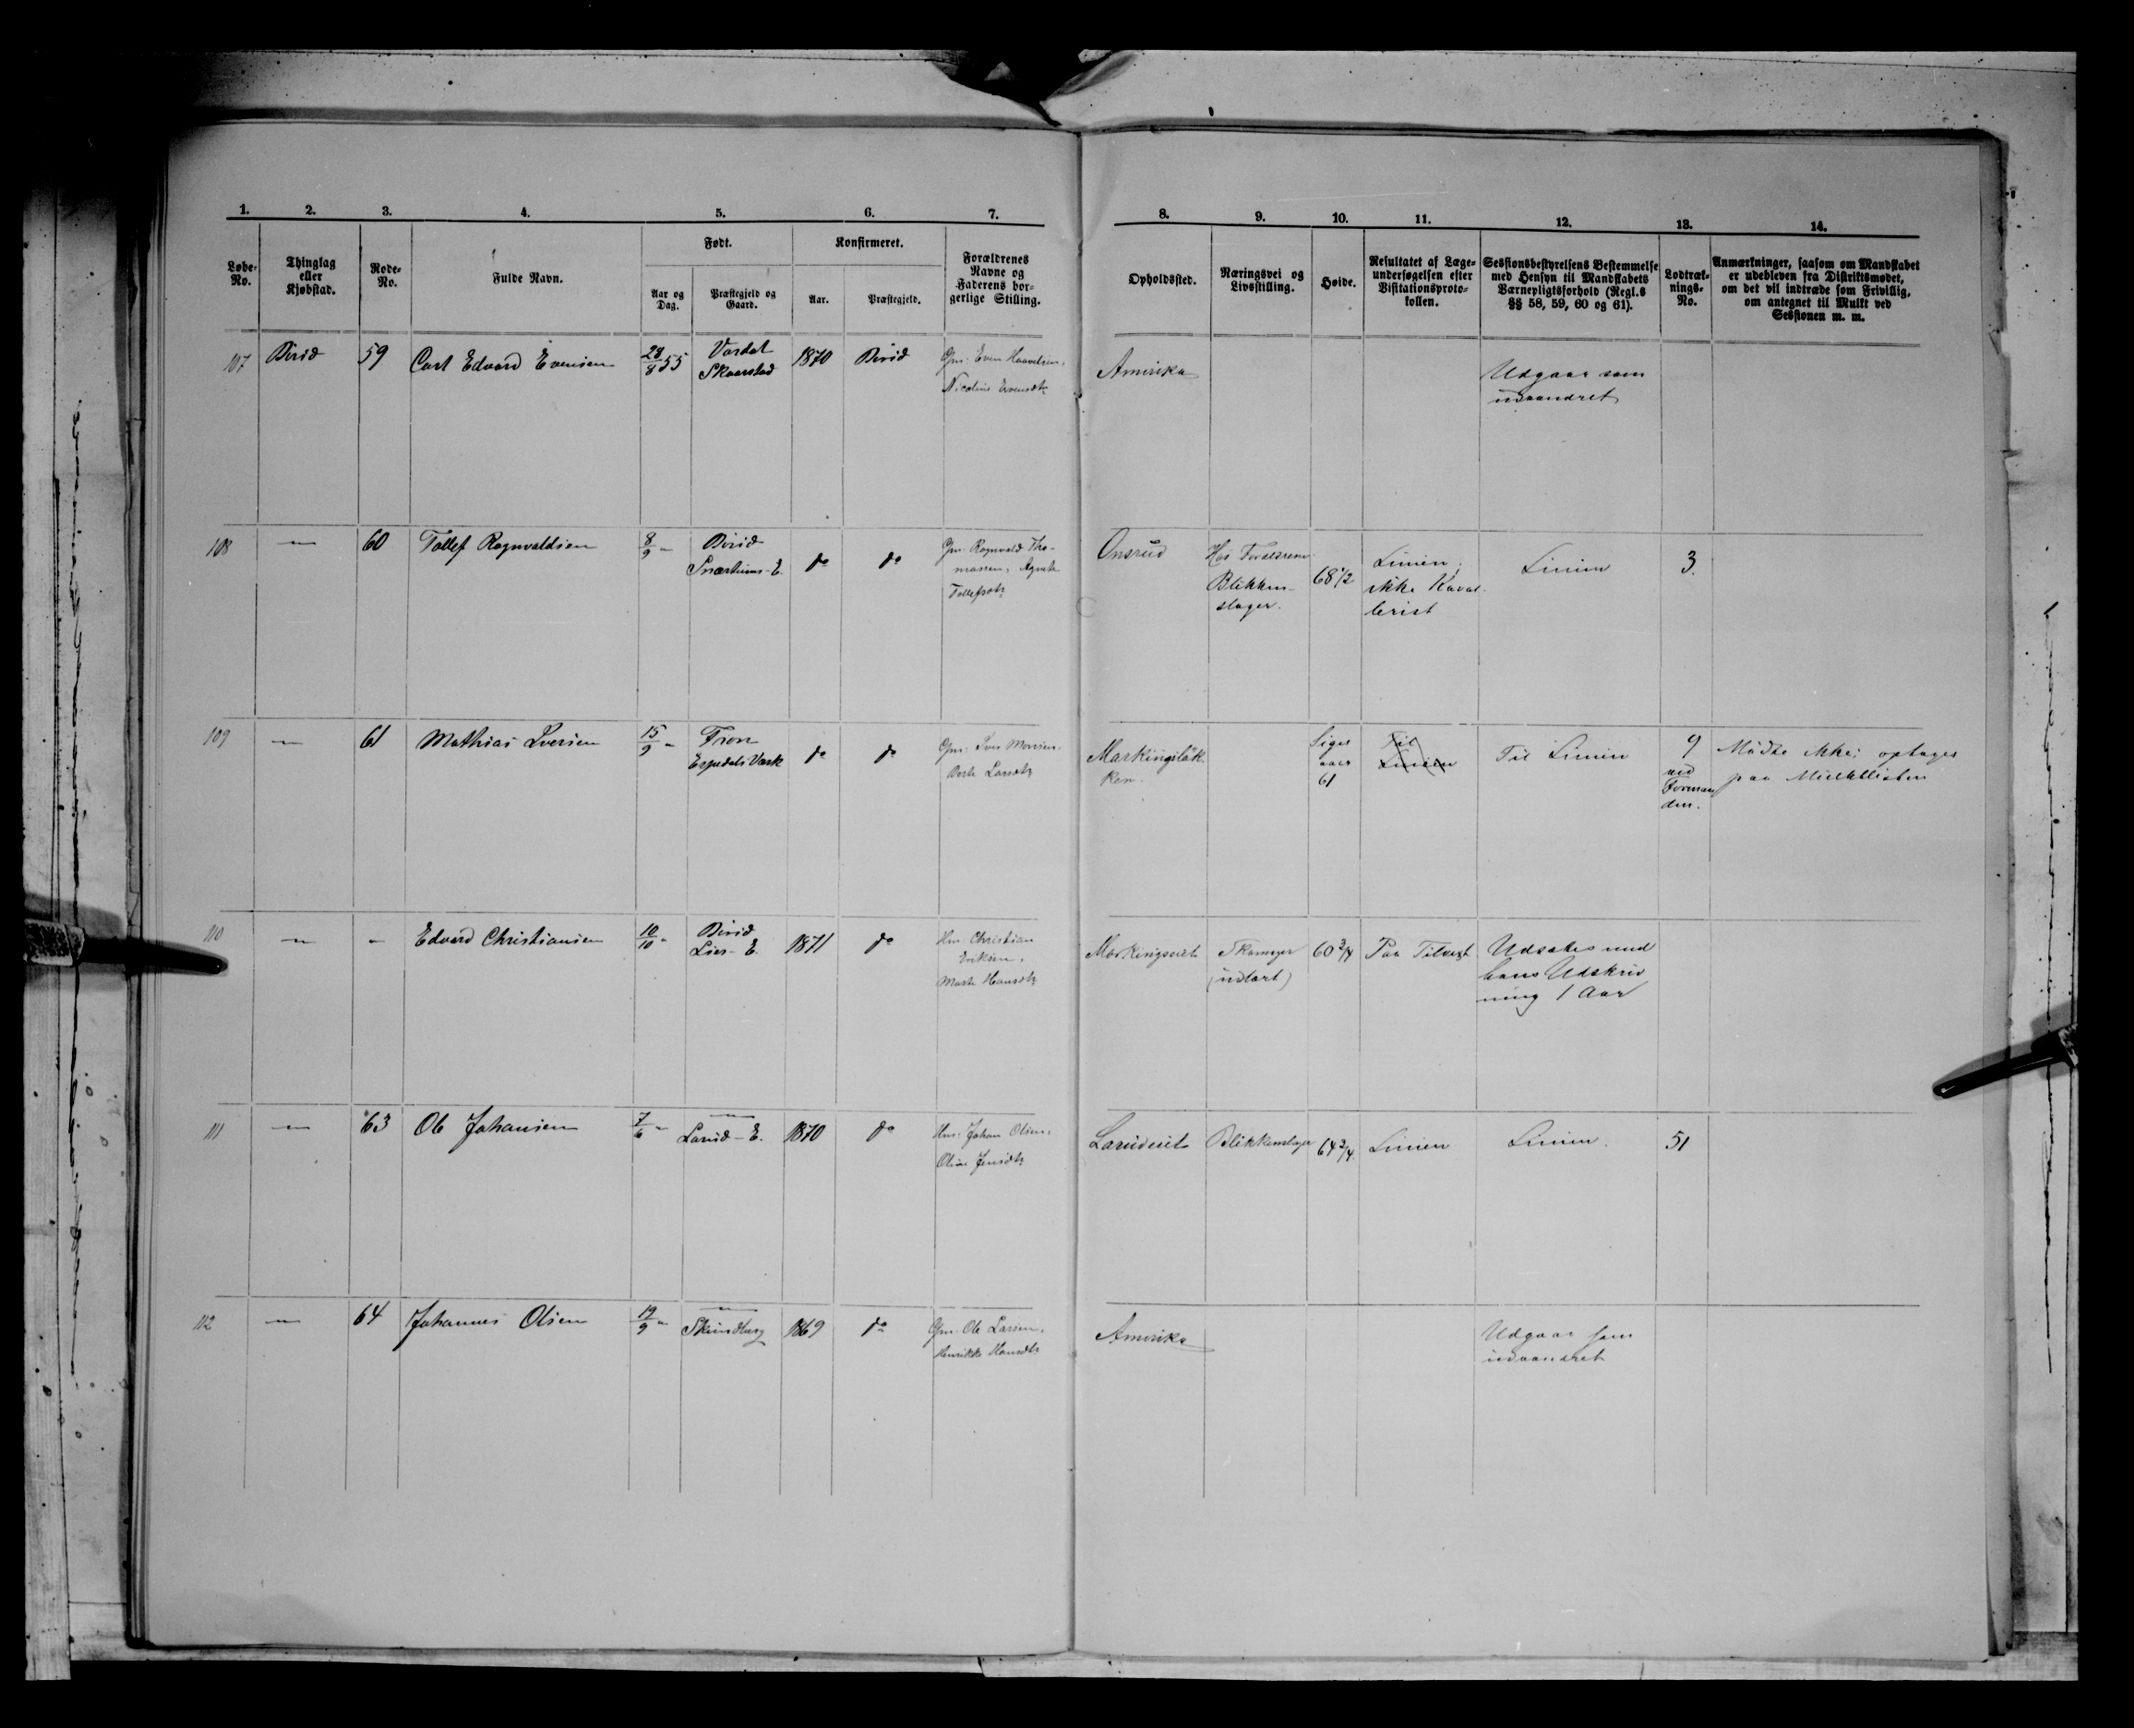 1. 2. 3. 4. 5. 6. 7. 8. 9. 10. 11. 12. 13. 14.
Løbe-
No.
Thinglag
eller
Kjøbstad.
Rode-
No.
Fulde Navn.
Født.
Aar og
Dag.
Præstegjeld og
Gaard.
Konfirmeret.
Aar.
Præstegjeld.
Forældrenes
Navne og
Faderens bor-
gerlige Stilling.
Opholdssted.
Næringsvei og
Livsstilling.
Høide.
Resultatet af Læge-
undersøgelsen efter
Visitationsproto-
kollen.
Sessionsbestyrelsens Bestemmelse
med Hensyn til Mandskabets
Værnepligtsforhold (Regl.s
§§ 58, 59, 60 og 61).
Lodtræk-
nings-
No.
Anmærkninger, saasom om Mandskabet
er udebleven fra Distriktsmødet,
om det vil indtræde som Frivillig,
om antegnet til Mulkt ved
Sessionen m. m.
107 Birid 59 Carl Edvard Evensen 28/8 55
Vardal
Skaarstad
1870 Birid
Gm. Even Haavelsen,
Nicoline Evensdtr
Amerika
Udgaar som
udvandret
108 — 60 Tollef Rognvaldsen 8/9 "
Birid
E.
do do
Gm. Rognvald Tho-
massen, Agnethe
Tollefsdtr
Onsrud
Hos Forældrene
Blikken-
slager.
68 1/2
Linien;
ikke Kaval-
lerist
Linien 3.
109 — 61 Mathias Iversen 15/9 "
Fron
Espedals Værk
do do
Gm. Iver
Larsdtr
Markingsløk-
ken.
Siges
være
61
Til
Linien
Til Linien
9
ved
Forman-
den.
Mødte ikke; optages
paa Mulktlisten
110 — " Edvard Christiansen 10/10 "
Birid
Lies-E.
1871 do
Hm. Christian
Eriksen,
Marte Hansdtr
Markingseiet
Skomager
(udlært)
60 3/4 Paa Tilvext
Udsættes med
hans Udskriv
ning 1 Aar
111 — 63 Ole Johansen 7/6 "
—
Larud-E.
1870 do
Hm. Johan Olsen,
Oline Jensdtr
Larudeiet Blikkenslager 64 3/4 Linien Linien. 51
112 — 64 Johannes Olsen 19/9 "
—
1869 do
Gm. Ole Larsen,
Henrikke Hansdtr
Amerika
Udgaar som
udvandret